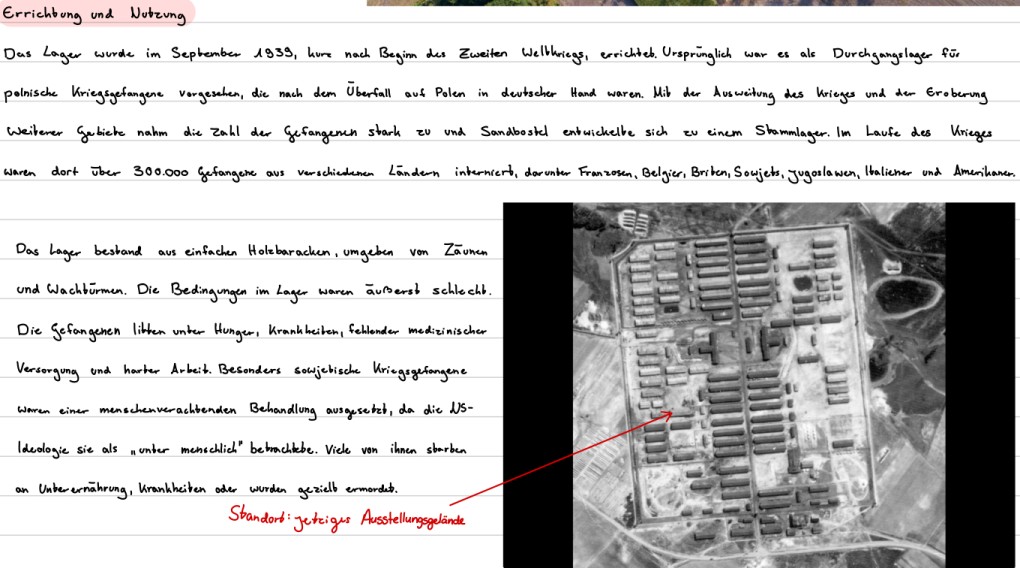 Errichtung und Nutzung
Das Lager wurde im September 1939, kurz nach Beginn des Zweiten Weltkriegs, errichtet. Ursprünglich war es als Durchgangslager für
polnische Kriegsgefangene vorgesehen, die nach dem Überfall auf Polen in deutscher Hand waren. Mit der Ausweitung des Krieges und der Eroberung
weiterer Gebiete nahm die Zahl der Gefangenen stark zu und Sandbostel entwickelte sich zu einem Stammlager. Im Laufe des Krieges
waren dort über 300.000 Gefangene aus verschiedenen Ländern interniert, darunter Franzosen, Belgier, Briten, Sowjets, Jugoslawen, Italiener und Amerikaner.
Das Lager bestand aus einfachen Holzbaracken, umgeben von Zäunen
und Wachtürmen. Die Bedingungen im Lager waren äußerst schlecht.
Die Gefangenen litten unter Hunger, Krankheiten, fehlender medizinischer
Versorgung und harter Arbeit. Besonders sowjetische Kriegsgefangene
waren einer menschenverachtenden Behandlung ausgesetzt, da die NS-
Ideologie sie als „unter menschlich" betrachtete. Viele von ihnen starben
an Unterernährung, Krankheiten oder wurden gezielt ermordet.
Standort: jetziges Ausstellungsgelände